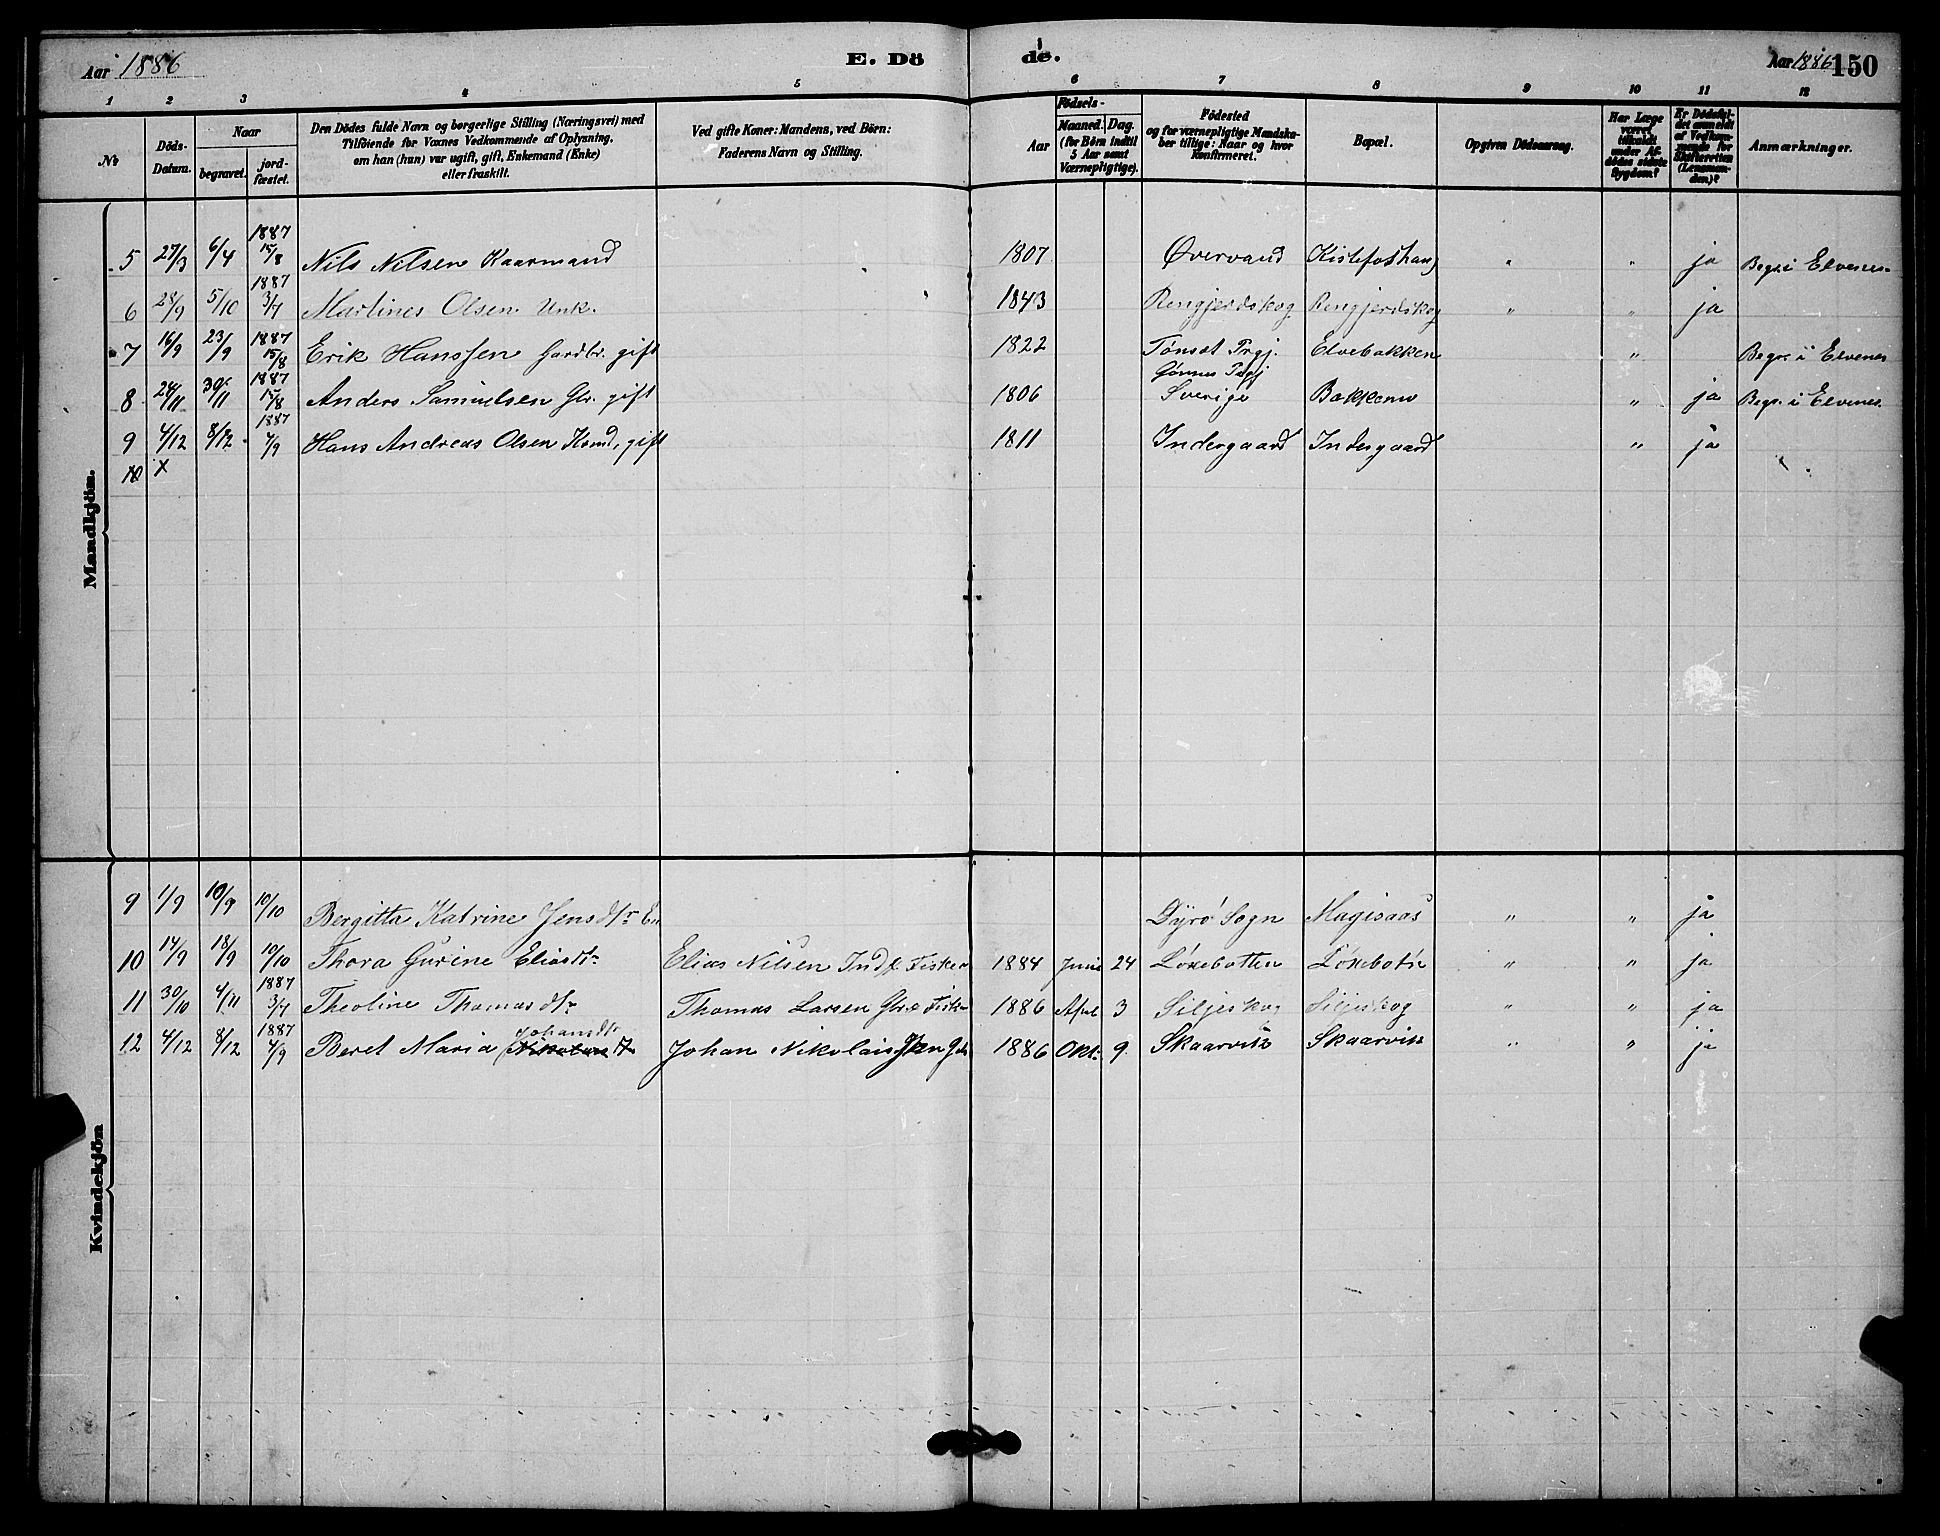 Aar 1886 E. Dö de. Aar 1886 150
1 2 3 4 5 6 7 8 9 10 11 12
No
Döds-Datum.
Naar
begravet.
jord-fæstet.
Den Dödes fulde Navn og borgerlige Stilling (Næringsvei) med
Tilföiende for Voxnes Vedkommende af Oplysning,
om han (hun) var ugift, gift, Enkemand (Enke)
eller fraskilt.
Ved gifte Koner: Mandens, ved Börn:
Faderens Navn og Stilling.
Födsels-
Aar
Maaned. Dag.
(for Börn indtil
5 Aar samt
Værnepligtige).
Födested
og for værnepligtige Mandska-
ber tillige: Naar og hvor
Konfirmeret.
Bopæl.
Opgiven Dödsaarsag.
Har Læge
været
tilkaldt
under Af-
dödes sidste
Sygdom?
Er Dödsfal-
det anmeldt
af Vedkom-
mende for
Skifteretten
(Lensman-
den)?
Anmærkninger.
Mandkjön.
5 27/3 6/4 1887 15/8 Nils Nilsen Kaarmand 1807 Øvervand Kistefoshaug " " ja Begr. i Elvenes
6 28/9 5/10 1887 3/7 Martines Olsen Unk. 1843 Rengjerdskog Rengjerdskog " " ja
7 16/9 23/9 1887 15/8 Erik Hanssen Gardbr. gift 1822 Tønset Prgj. Elvebakken " Begr. i Elvenes
8 24/11 30/11 1887 15/8 Anders Samuelsen Gbr. gift 1806 Prgj Sverige Bakkene " ja Begr. i Elvenes.
9 4/12 8/12 1887 4/9 Hans Andreas Olsen Kdmd, gift 1811 Indergaard Indergaard " ja
10 x
Kvindekjön
9 1/9 10/9 10/10 Bergitta Katrine Jensdtr En Dyrø Sogn Magisaas " " ja
10 14/9 18/9 10/10 Thora Gurine Eliasdtr Elias Nilsen Indf. Fisker 1884 Juni 24 Løxebotten Løxebotn " " ja
11 30/10 4/11 1887 3/7 Theoline Thomasdtr Thomas Larsen Gbr & Fisker 1886 April 3 Siljeskog Siljeskog " " ja
12 4/12 8/12 1887 4/9 Beret Maria Johansdtr Johan Nikolaissen 1886 Okt. 9 Skaarvik Skaarvik " " ja